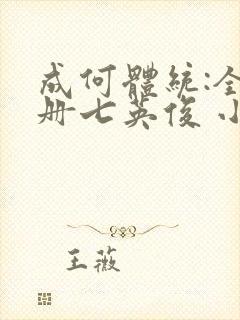 成何體統:全
册七英俊 小
王薇